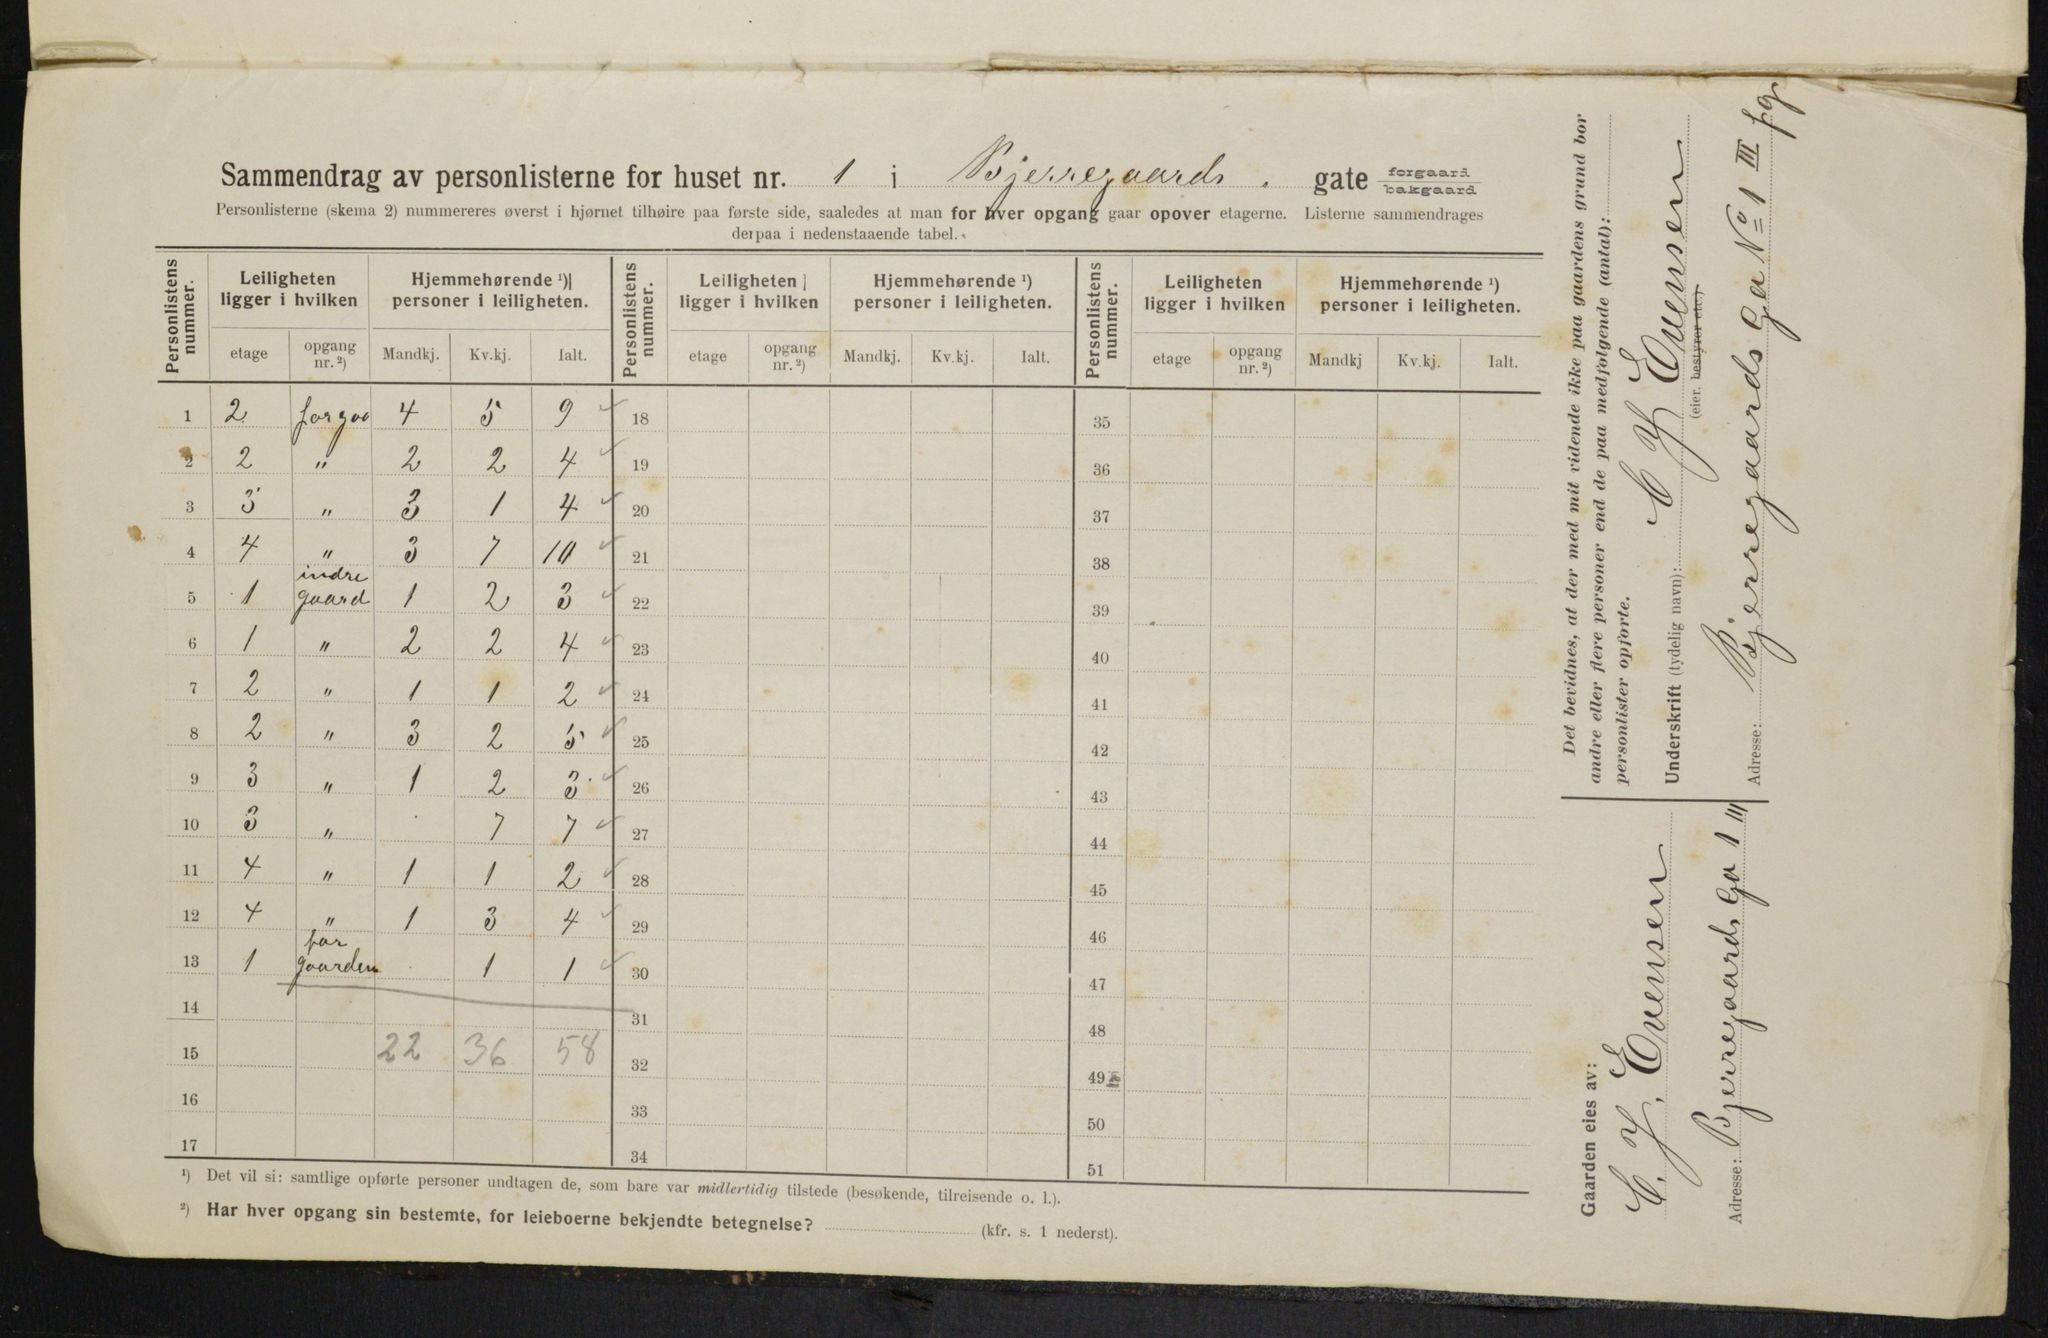 Sammendrag av personlisterne for huset nr. 1 i Bjerregaards . gate forgaard bakgaard
Personlisterne (skema 2) nummereres øverst i hjørnet tilhøire paa første side, saaledes at man for hver opgang gaar opover etagerne. Listerne sammendrages
derpaa i nedenstaaende tabel.
Personlistens nummer. Leiligheten ligger i hvilken Hjemmehørende ¹) personer i leiligheten. Personlistens nummer. Leiligheten ligger i hvilken Hjemmehørende ¹) personer i leiligheten. Personlistens nummer. Leiligheten ligger i hvilken Hjemmehørende ¹) personer i leiligheten.
etage opgang nr. ²) Mandkj. Kv.kj. Ialt. etage opgang nr. ²) Mandkj. Kv.kj. Ialt. etage opgang nr. ²) Mandkj Kv.kj. Ialt.
1 2 forgaa 4 5 9 ✓ 18 35
2 2 " 2 2 4 ✓ 19 36
3 3 " 3 1 4 ✓ 20 37
4 4 " 3 7 10 ✓ 21 38
5 1 indre gaard 1 2 3 ✓ 22 39
6 1 " 2 2 4 ✓ 23 40
7 2 " 1 1 2 ✓ 24 41
8 2 " 3 2 5 ✓ 25 42
9 3 " 1 2 3 ✓ 26 43
10 3 " . 7 7 ✓ 27 44
11 4 " 1 1 2 ✓ 28 45
12 4 " 1 3 4 ✓ 29 46
13 1 for gaarden . 1 1 ✓ 30 47
14 31 48
15 22 36 58 32 49
16 33 50
17 34 51
¹) Det vil si: samtlige opførte personer undtagen de, som bare var midlertidig tilstede (besøkende, tilreisende o. l.).
²) Har hver opgang sin bestemte, for leieboerne bekjendte betegnelse? (kfr. s. 1 nederst).
Det bevidnes, at der med mit vidende ikke paa gaardens grund bor
andre eller flere personer end de paa medfølgende (antal):
personlister opførte.
Underskrift (tydelig navn): C Y E Evensen
(eier, bestyrer etc.)
Adresse: Bjerregaards Ga No 1 III fg
Gaarden eies av:
C. Y. E Evensen
Adresse: Bjerregaards Ga 1 III